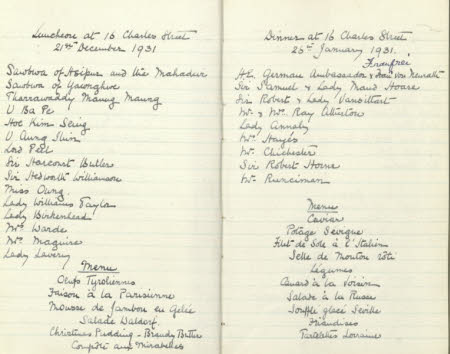 Luncheon at 16 Charles Street
21st December 1931
Sawbwa of Hsipaw and the Mahadevi
Sawbwa of Yawnghwe
Tharrawaddy Maung Maung
U Ba Pe
Hoe Kim Seing
U Aung Thin
Lord Peel
Sir Harcourt Butler
Sir Hedworth Williamson
Miss Oung
Lady Williams Taylor
Lady Birkenhead
Mrs Warde
Mrs Maguire
Lady Lavery
Menu
Oeufs Tyroliennes
Faison à la Parisienne
Mousse de Jambon en Gelée
Salade Waldorf
Christmas Pudding - Brandy Butter
Compôte aux Mirabelles
Dinner at 16 Charles Street
26th January 1931.
H.E. German Ambassador & von Neurath
Sir Samuel & Lady Maud Hoare
Sir Robert & Lady Vansittart
Mr & Mrs Ray Atherton
Lady Annaly
Mrs Hayes
Mr Chichester
Sir Robert Horne
Mr Runciman
Menu
Caviar
Potage Sevigne
Filet de Sole à l'Italien
Selle de Mouton rôti
Légumes
Canard à la Voisin
Salade à la Russe
Souffle glacé Seville
Friandises
Tartelettes Lorraine